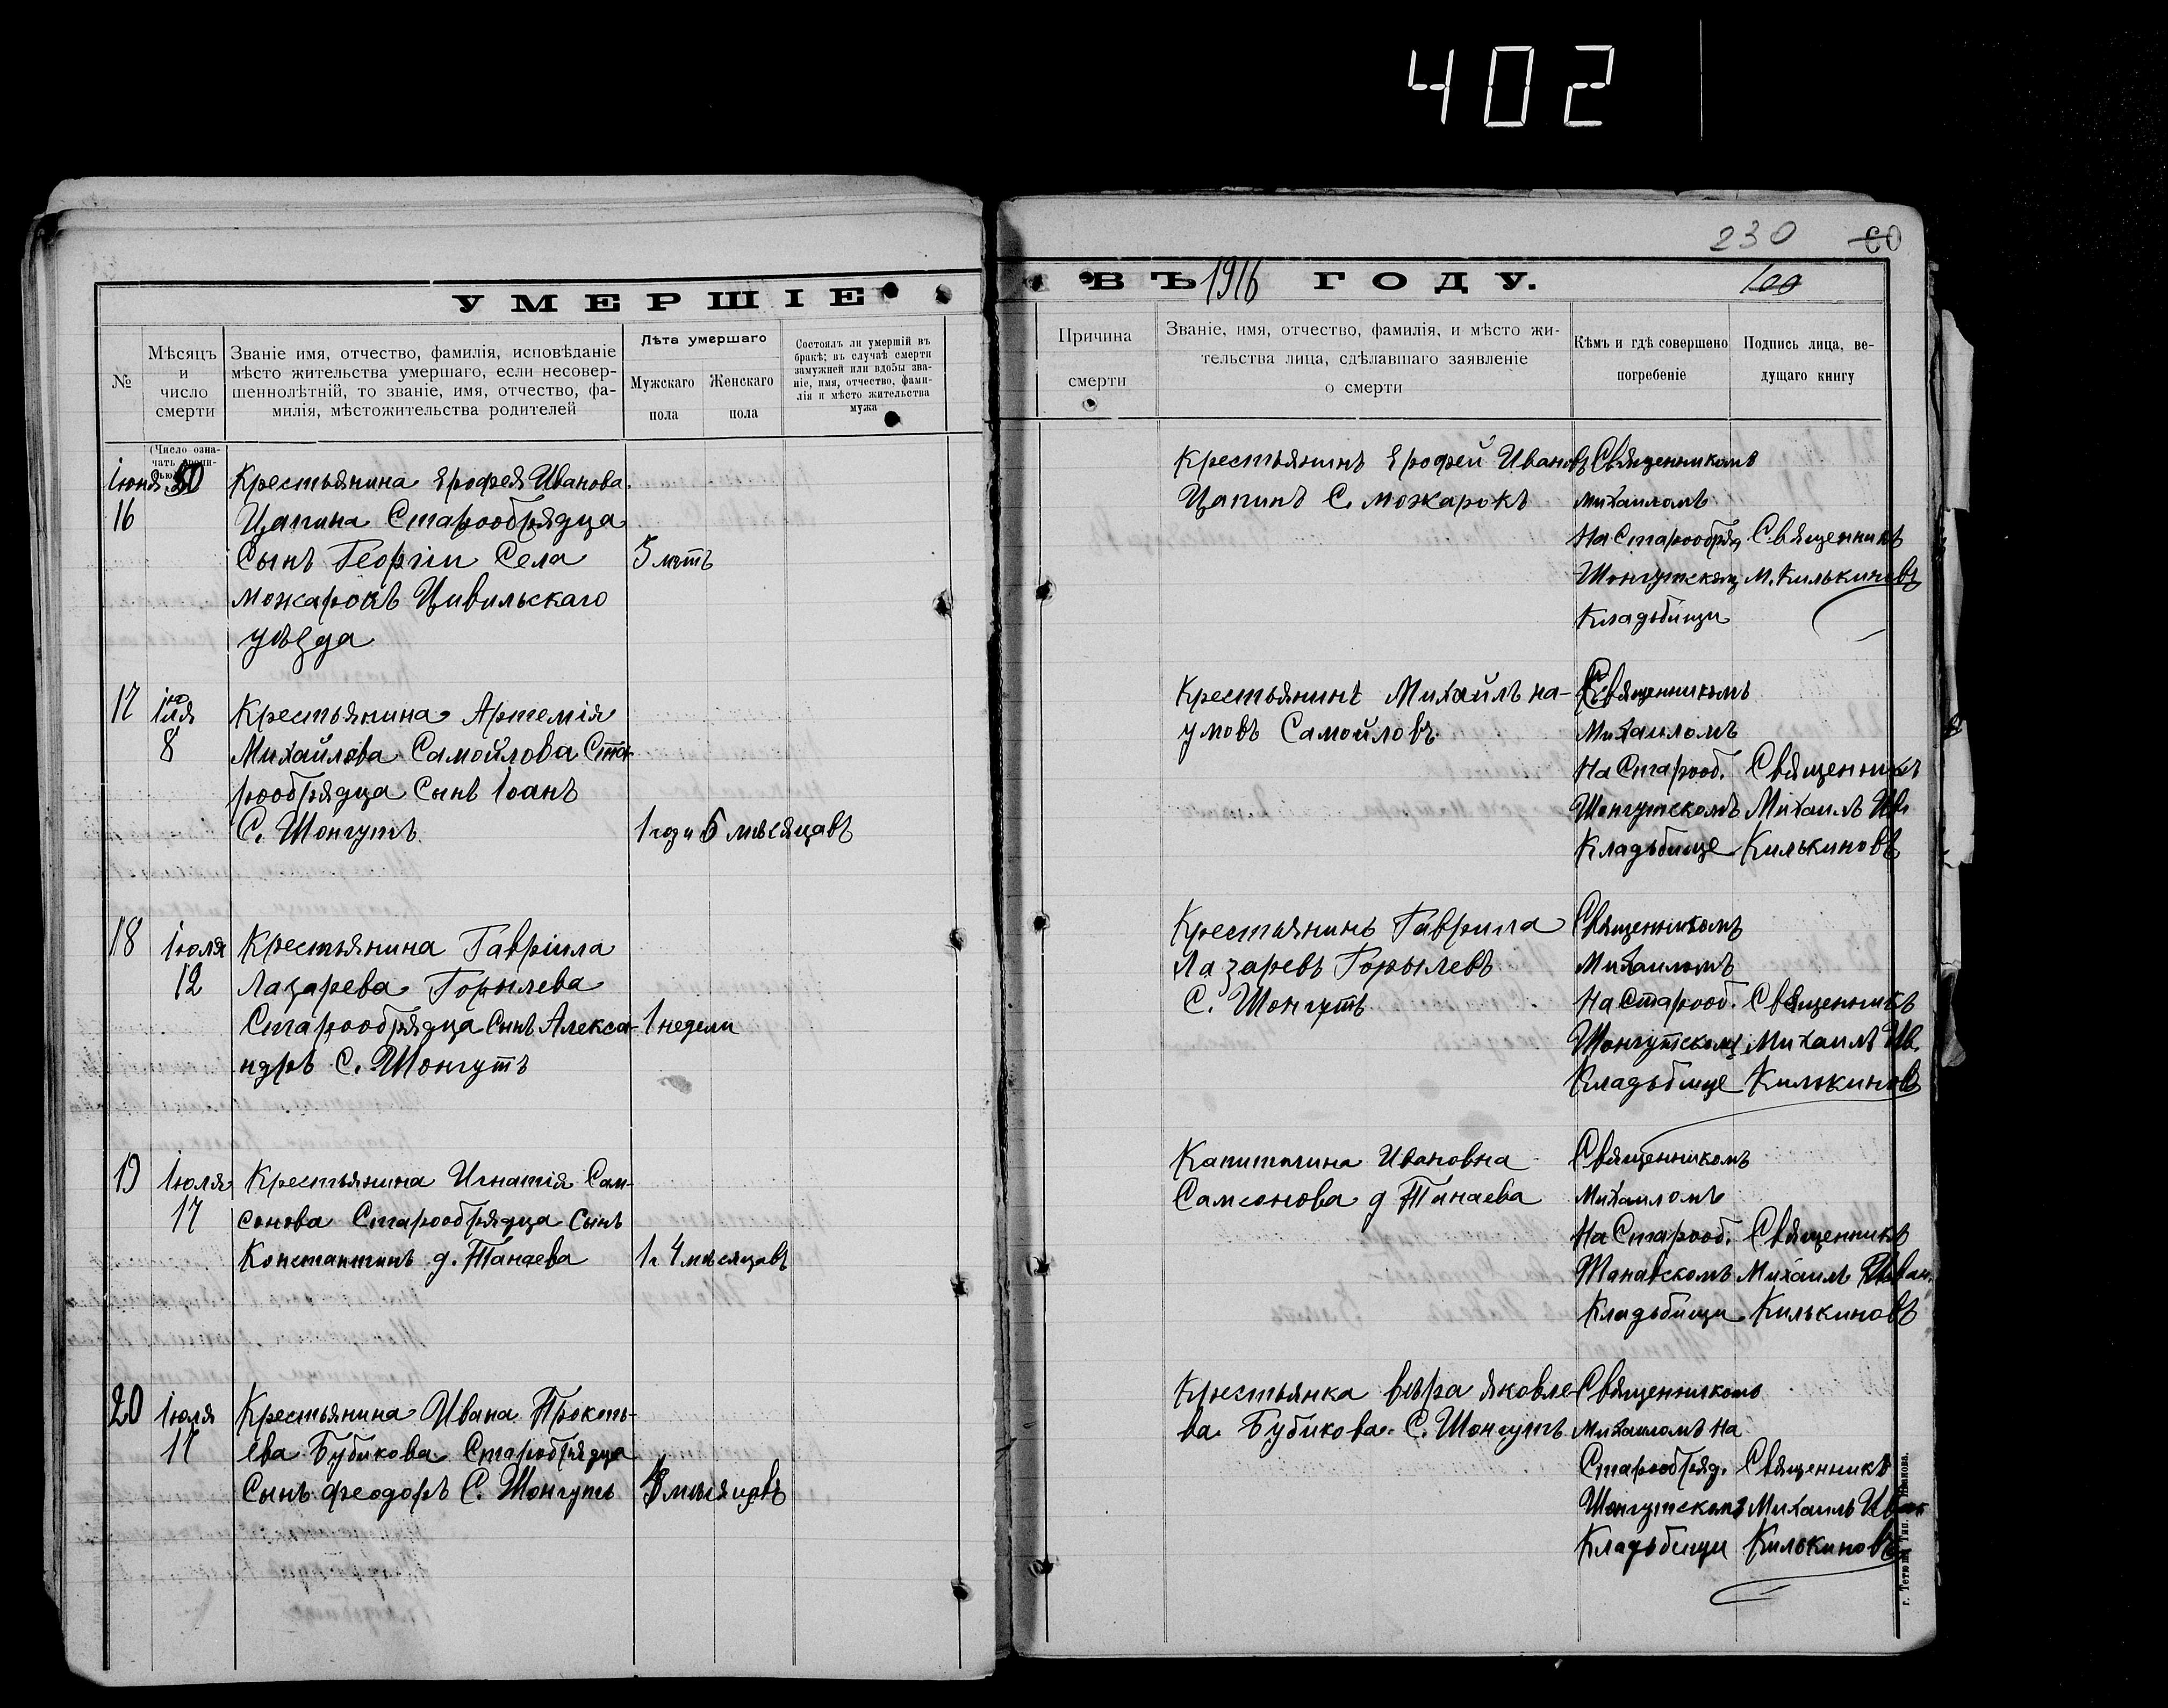 402
230 60
УМЕРШІЕ
ВЪ 1916 ГОДУ.
№
Мѣсяцъ
и
число
смерти
Званіе имя, отчество, фамилія, исповѣданіе
мѣсто жительства умершаго, если несовер-
шеннолѣтній, то званіе, имя, отчество, фа-
милія, мѣстожительства родителей
Лѣта умершаго
Мужскаго
пола
Женскаго
пола
Состоялъ ли умершій въ
бракѣ; въ случаѣ смерти
замужней или вдовы зва-
ніе, имя, отчество, фами-
лія и мѣсто жительства
мужа
Причина
смерти
Званіе, имя, отчество, фамилія, и мѣсто жи-
тельства лица, сдѣлавшаго заявленіе
о смерти
Кѣмъ и гдѣ совершено
погребеніе
Подпись лица, ве-
дущаго книгу
(Число озна-
чать
Іюня
16
Крестьянина Ерофея Иванова
Цапина Старообрядца
Сынъ Георгіи Села
Можарокъ Цивильскаго
уѣзда
5 лѣтъ
Крестьянинъ Ерофей Ивановъ
Цапинъ С. Можарокъ
Священникомъ
Михаиломъ
На Старообряд
Шонгутскомъ
Кладьбищи
Священникъ
М. Килькиновъ
17
іюля
8
Крестьянина Артемія
Михайлова Самойлова Ста-
рообрядца Сынъ Іоанъ
С. Шонгутъ
1 год и 6 мѣсяцавъ
Крестьянинъ Михайлъ На-
умовъ Самойловъ
Священникомъ
Михаиломъ
На Старооб.
Шонгутскомъ
Кладьбище
Священникъ
Михаилъ Ив.
Килькиновъ
18
Іюля
12
Крестьянина Гавріила
Лазарева Горылева
Старообрядца Сынъ Алекса-
ндръ С. Шонгутъ
1 недели
Крестьянинъ Гаврила
Лазаревъ Горылевъ
С. Шонгутъ
Священникомъ
Михаиломъ
На Старооб.
Шонгутскомъ
Кладьбище
Священникъ
Михаилъ Ив.
Килькиновъ
19
Іюля
17
Крестьянина Игнатія Сам-
сонова Старообрядца Сынъ
Константинъ д. Танаева
1 г 4 мѣсяцовъ
Капиталина Ивановна
Самсонова д Танаева
Священникомъ
Михаиломъ
На Старооб.
Танавскомъ
Кладьбищи
Священникъ
Михаилъ Иван.
Килькиновъ
20
Іюля
17
Крестьянина Ивана Прокоть-
ева Бубикова Старобрядца
Сынъ Феодоръ С. Шонгутъ
8 мѣсяцовъ
Крестьянка Вѣра Яковле-
ва Бубикова С. Шонгутъ
Священникомъ
Михаиломъ На
Старообряд.
Шонгутскомъ
Кладьбищи
Священникъ
Михаилъ Иван
Килькиновъ